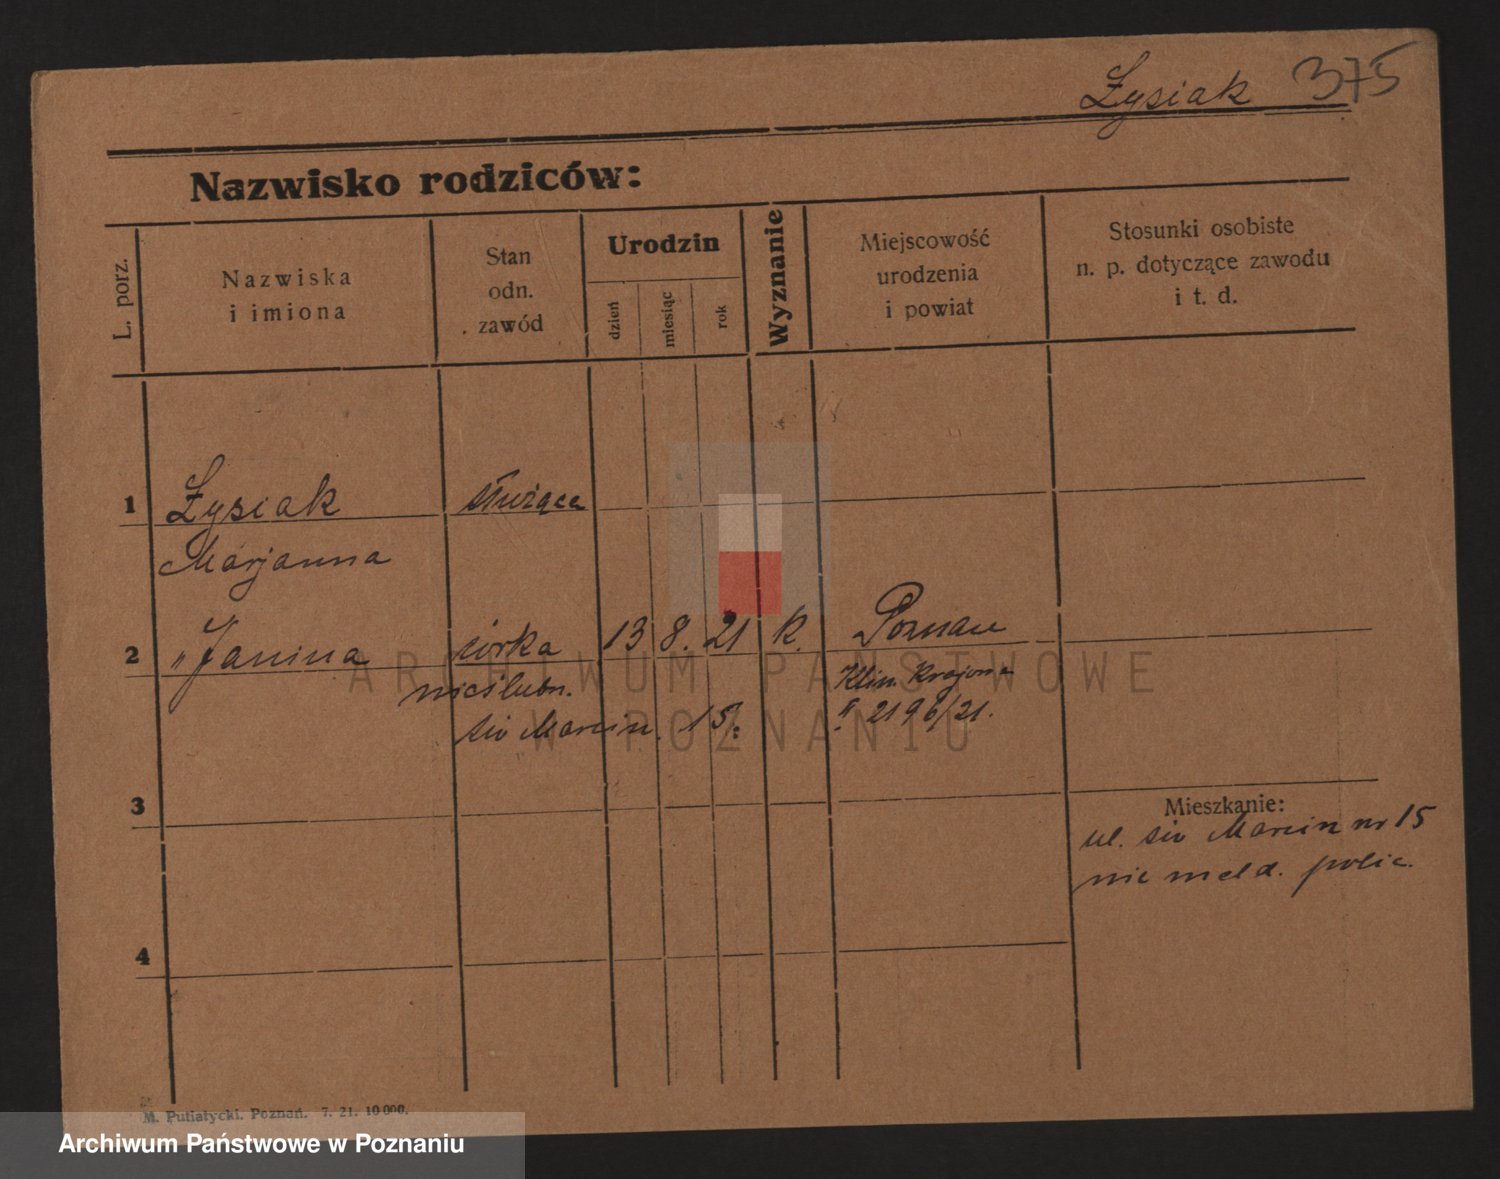 Żysiak 375
Nazwisko rodziców:
L. porz.
Nazwiska
i imiona
Stan
odn.
zawód
Urodzin
dzień
miesiąc
rok
Wyznanie
Miejscowość
urodzenia
i powiat
Stosunki osobiste
n. p. dotyczące zawodu
i t. d.
1 Żysiak służąca
Marjanna
2 " Janina córka 13 8. 21 k. Poznań
nieślubn. Klin. Krajowa
św Marcin. 15. 2196/21.
3
Mieszkanie:
ul. św Marcin nr 15
nie meld. polic.
4
M. Putiatycki. Poznań. 7. 21. 10 000.
ARCHIWUM PAŃSTWOWE
W POZNANIU
Archiwum Państwowe w Poznaniu